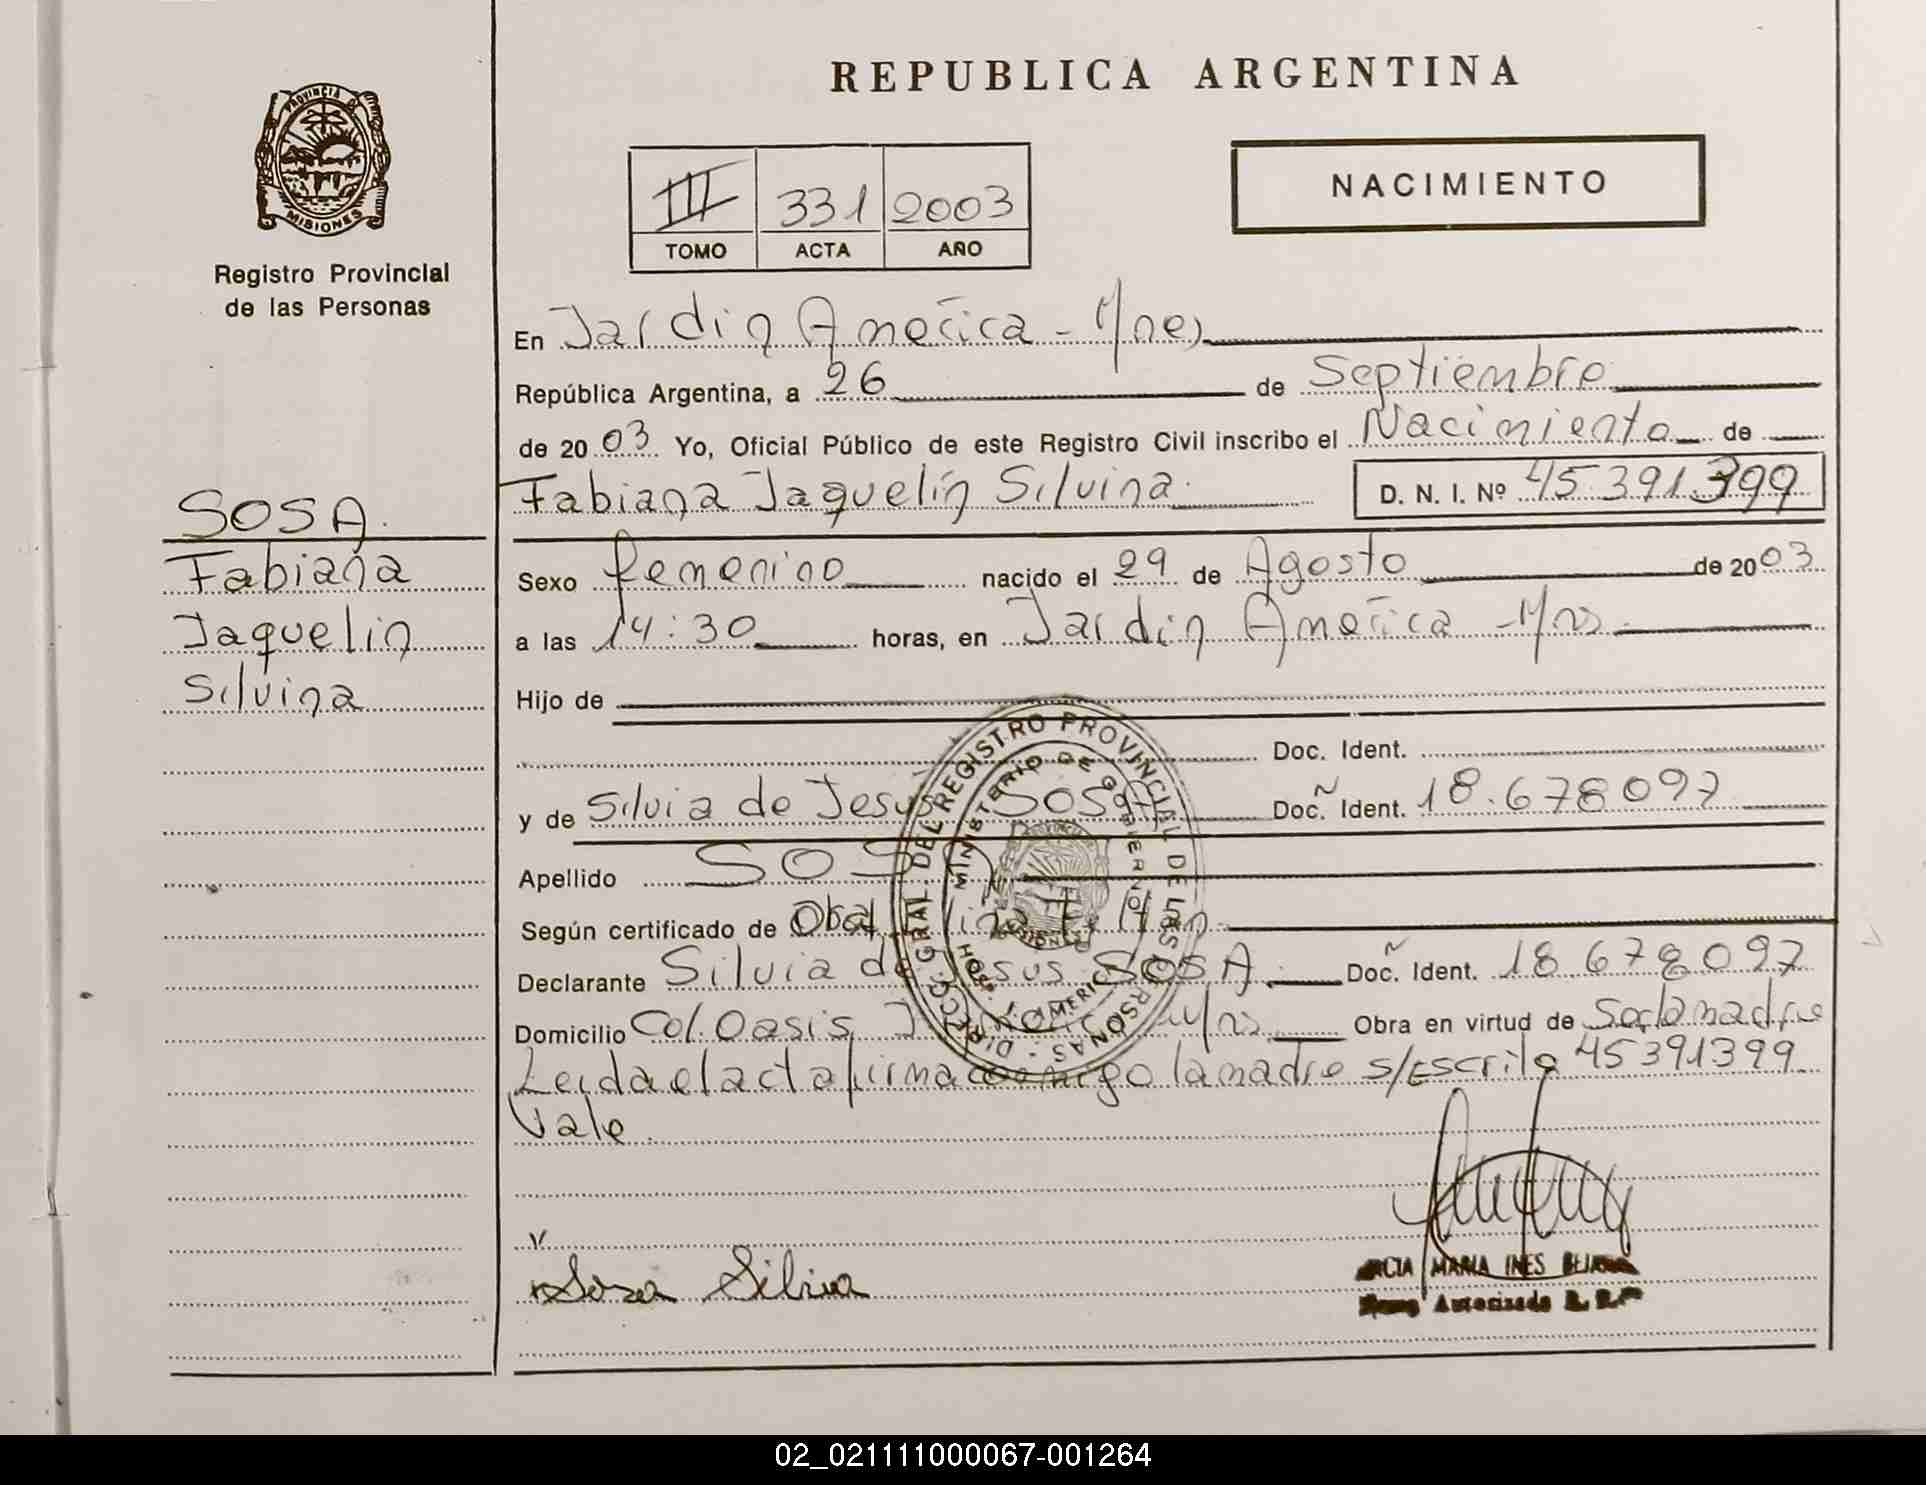 REPUBLICA ARGENTINA
PROVINCIA DE
MISIONES
Registro Provincial
de las Personas
III 331 2003
TOMO ACTA AÑO
NACIMIENTO
En Jardin America - Mnes
República Argentina, a 26 de Septiembre
de 2003 Yo, Oficial Público de este Registro Civil inscribo el Nacimiento de
Fabiana Jaquelin Silvina D. N. I. Nº 45.391.399
SOSA
Fabiana
Jaquelin
Silvina
Sexo femenino nacido el 29 de Agosto de 2003
a las 14:30 horas, en Jardin America - Mns
Hijo de
Doc. Ident.
y de Silvia de Jesus SOSA Doc. Ident. 18.678097
Apellido SOSA
Según certificado de
Declarante Silvia de Jesus SOSA Doc. Ident. 18 678097
Domicilio Col. Oasis Mns Obra en virtud de Ser la madre
Leida el acta firma conmigo la madre s/Escrito 45391399
Vale
DIRECC. GRAL. DEL REGISTRO PROVINCIAL DE LAS PERSONAS
MINISTERIO DE GOBIERNO
Sosa Silvia
MARIA INES
Autorizada
02_021111000067-001264